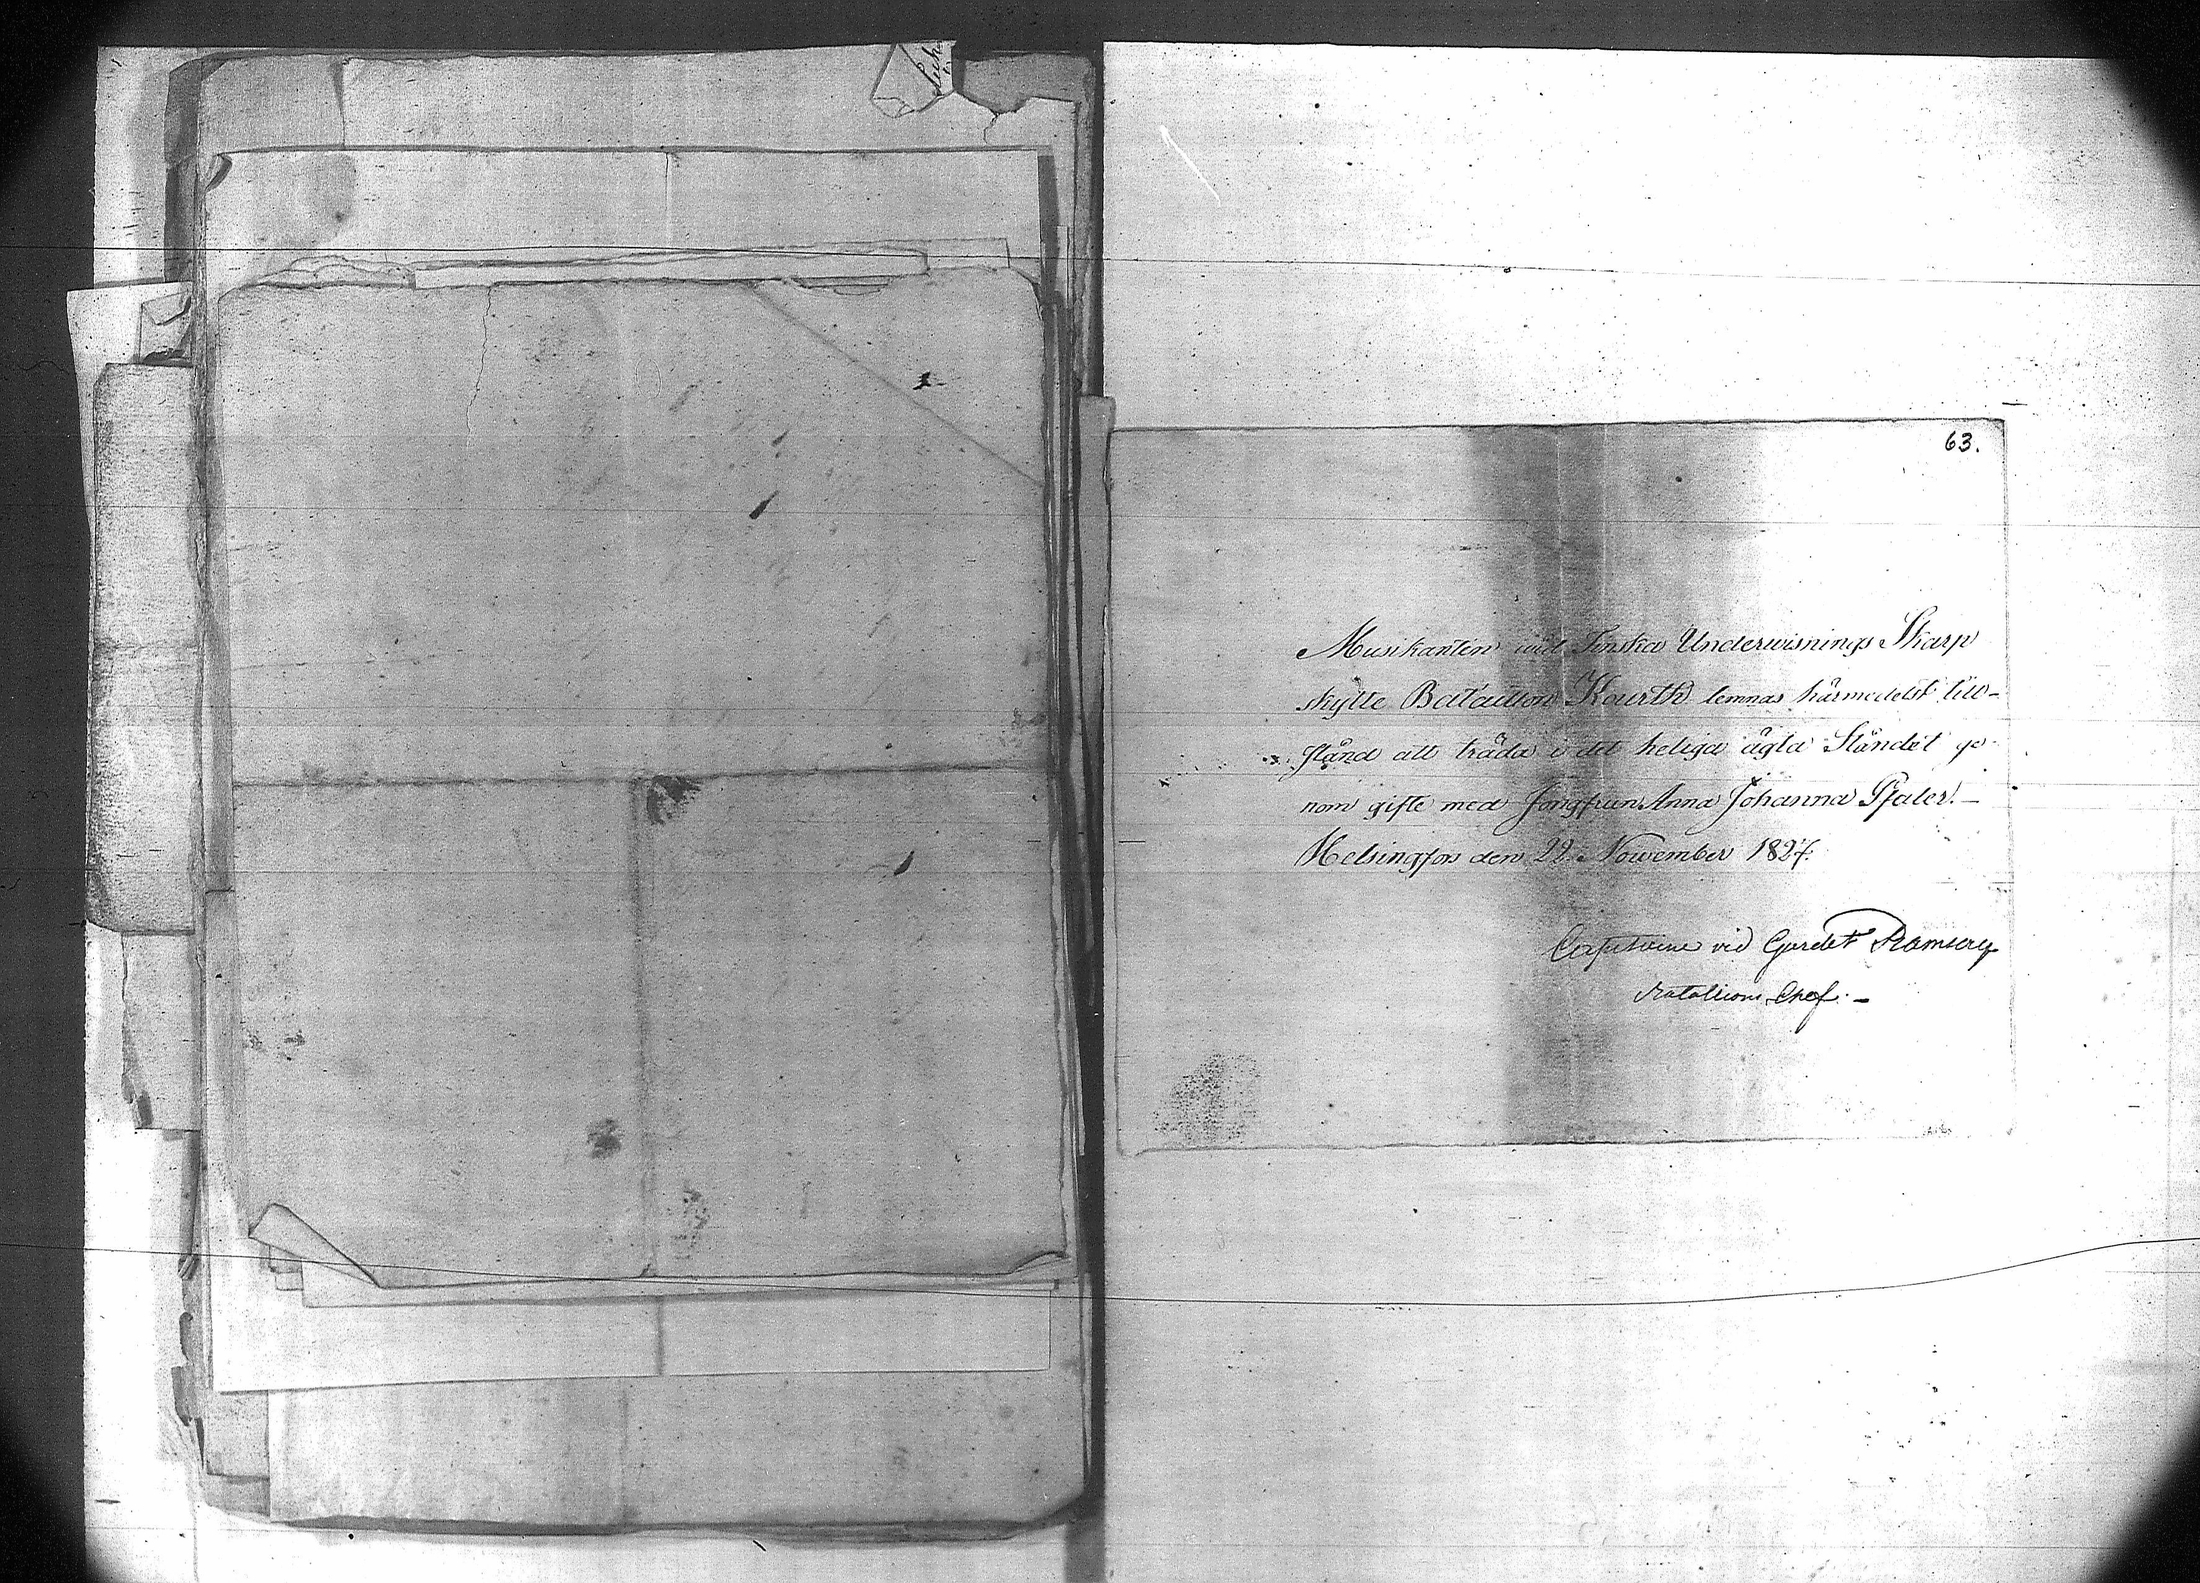 63.
Musikanten wid Finska Underwisnings Skarp
skytte Batailion Kourth lemnas härmedelst till-
stånd att träda i det heliga ägta Ståndet ge-
nom gifte med Jungfrun Anna Johanna Pfaler. –
Helsingfors den 22 November 1827.
Capitaine vid Gardet Ramsay
Batallions Chef. –